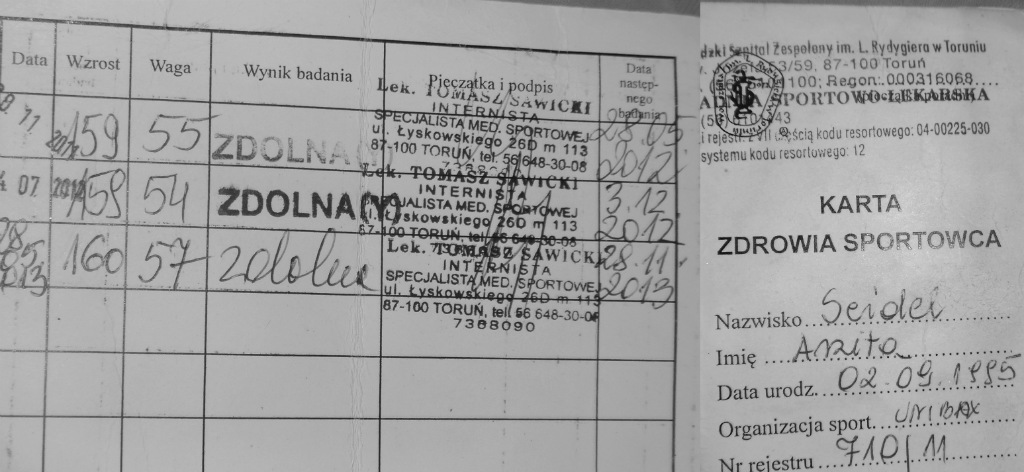 Data Wzrost Waga Wynik badania Pieczątka i podpis Data następ- nego badania
159 55 ZDOLNA(Y) 28.05 2012
Lek. TOMASZ SAWICKI
INTERNISTA
SPECJALISTA MED. SPORTOWEJ
ul. Łyskowskiego 26D m 113
87-100 TORUŃ, tel. 56 648-30-08
07 2012 159 54 ZDOLNA(Y) 3.12 2012
Lek. TOMASZ SAWICKI
INTERNISTA
SPECJALISTA MED. SPORTOWEJ
ul. Łyskowskiego 26D m 113
87-100 TORUŃ, tel. 56 648-30-08
160 57 zdolna 28.11 2013
Lek. TOMASZ SAWICKI
INTERNISTA
SPECJALISTA MED. SPORTOWEJ
ul. Łyskowskiego 26D m 113
87-100 TORUŃ, tel. 56 648-30-08
7368090
dzki Szpital Zespolony im. L. Rydygiera w Toruniu
53/59, 87-100 Toruń
100; Regon: 000316068
SPORTOWO-LEKARSKA
częścią kodu resortowego: 04-00225-030
systemu kodu resortowego: 12
KARTA
ZDROWIA SPORTOWCA
Nazwisko Seidel
Imię Anita
Data urodz. 02.09.1995
Organizacja sport. UNIBAX
Nr rejestru 710/11